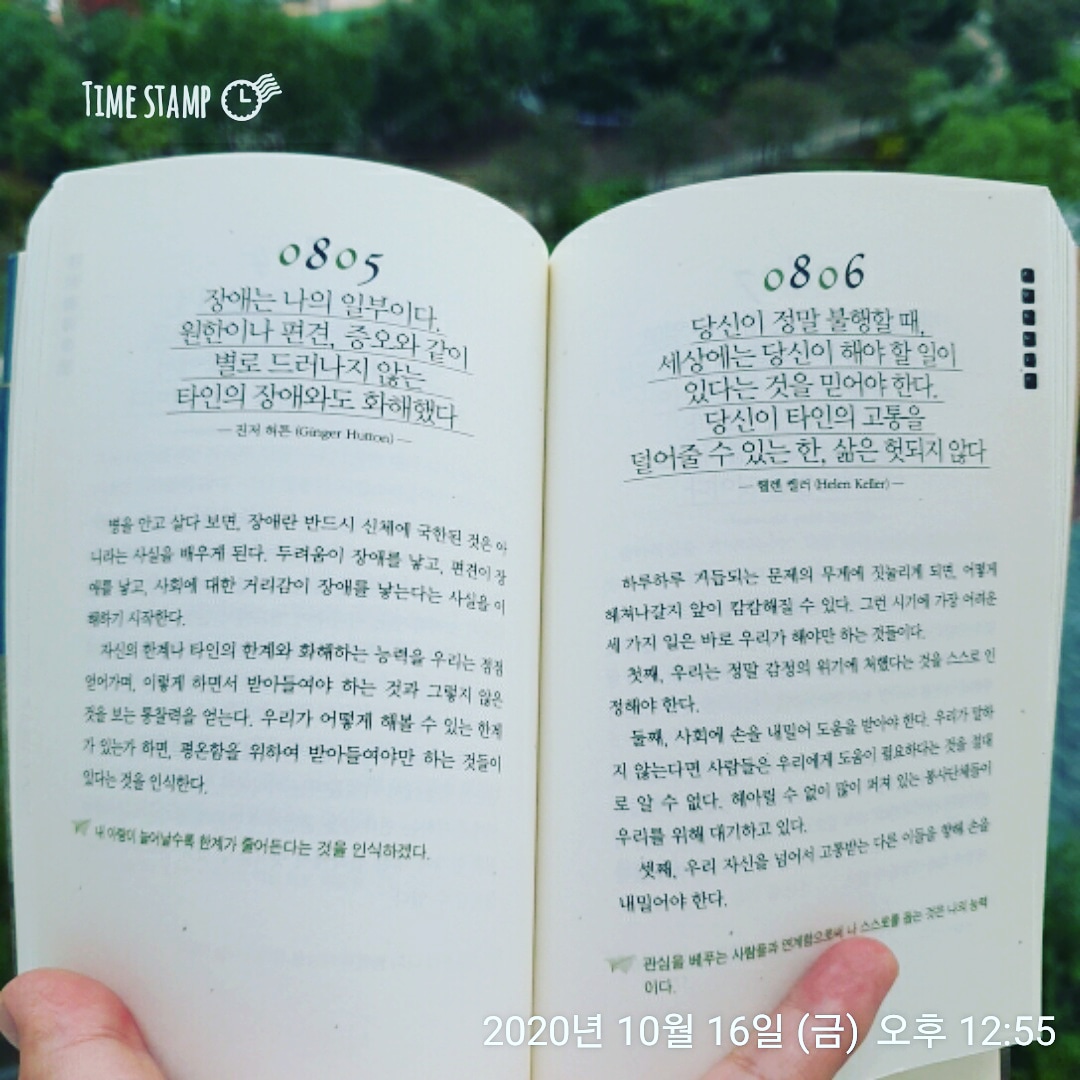 TIME STAMP
0805
장애는 나의 일부이다.
원한이나 편견, 증오와 같이
별로 드러나지 않는
타인의 장애와도 화해했다
— 진저 허튼 (Ginger Hutton) —
병을 안고 살다 보면, 장애란 반드시 신체에 국한된 것은 아
니라는 사실을 배우게 된다. 두려움이 장애를 낳고, 편견이 장
애를 낳고, 사회에 대한 거리감이 장애를 낳는다는 사실을 이
해하기 시작한다.
자신의 한계나 타인의 한계와 화해하는 능력을 우리는 점점
얻어가며, 이렇게 하면서 받아들여야 하는 것과 그렇지 않은
것을 보는 통찰력을 얻는다. 우리가 어떻게 해볼 수 있는 한계
가 있는가 하면, 평온함을 위하여 받아들여야만 하는 것들이
있다는 것을 인식한다.
내 아량이 늘어날수록 한계가 줄어든다는 것을 인식하겠다.
0806
당신이 정말 불행할 때,
세상에는 당신이 해야 할 일이
있다는 것을 믿어야 한다.
당신이 타인의 고통을
덜어줄 수 있는 한, 삶은 헛되지 않다
— 헬렌 켈러 (Helen Keller) —
하루하루 거듭되는 문제의 무게에 짓눌리게 되면, 어떻게
헤쳐나갈지 앞이 캄캄해질 수 있다. 그런 시기에 가장 어려운
세 가지 일은 바로 우리가 해야만 하는 것들이다.
첫째, 우리는 정말 감정의 위기에 처했다는 것을 스스로 인
정해야 한다.
둘째, 사회에 손을 내밀어 도움을 받아야 한다. 우리가 말하
지 않는다면 사람들은 우리에게 도움이 필요하다는 것을 절대
로 알 수 없다. 헤아릴 수 없이 많이 퍼져 있는 봉사단체들이
우리를 위해 대기하고 있다.
셋째, 우리 자신을 넘어서 고통받는 다른 이들을 향해 손을
내밀어야 한다.
관심을 베푸는 사람들과 연계함으로써 나 스스로를 돕는 것은 나의 능력
이다.
2020년 10월 16일 (금) 오후 12:55